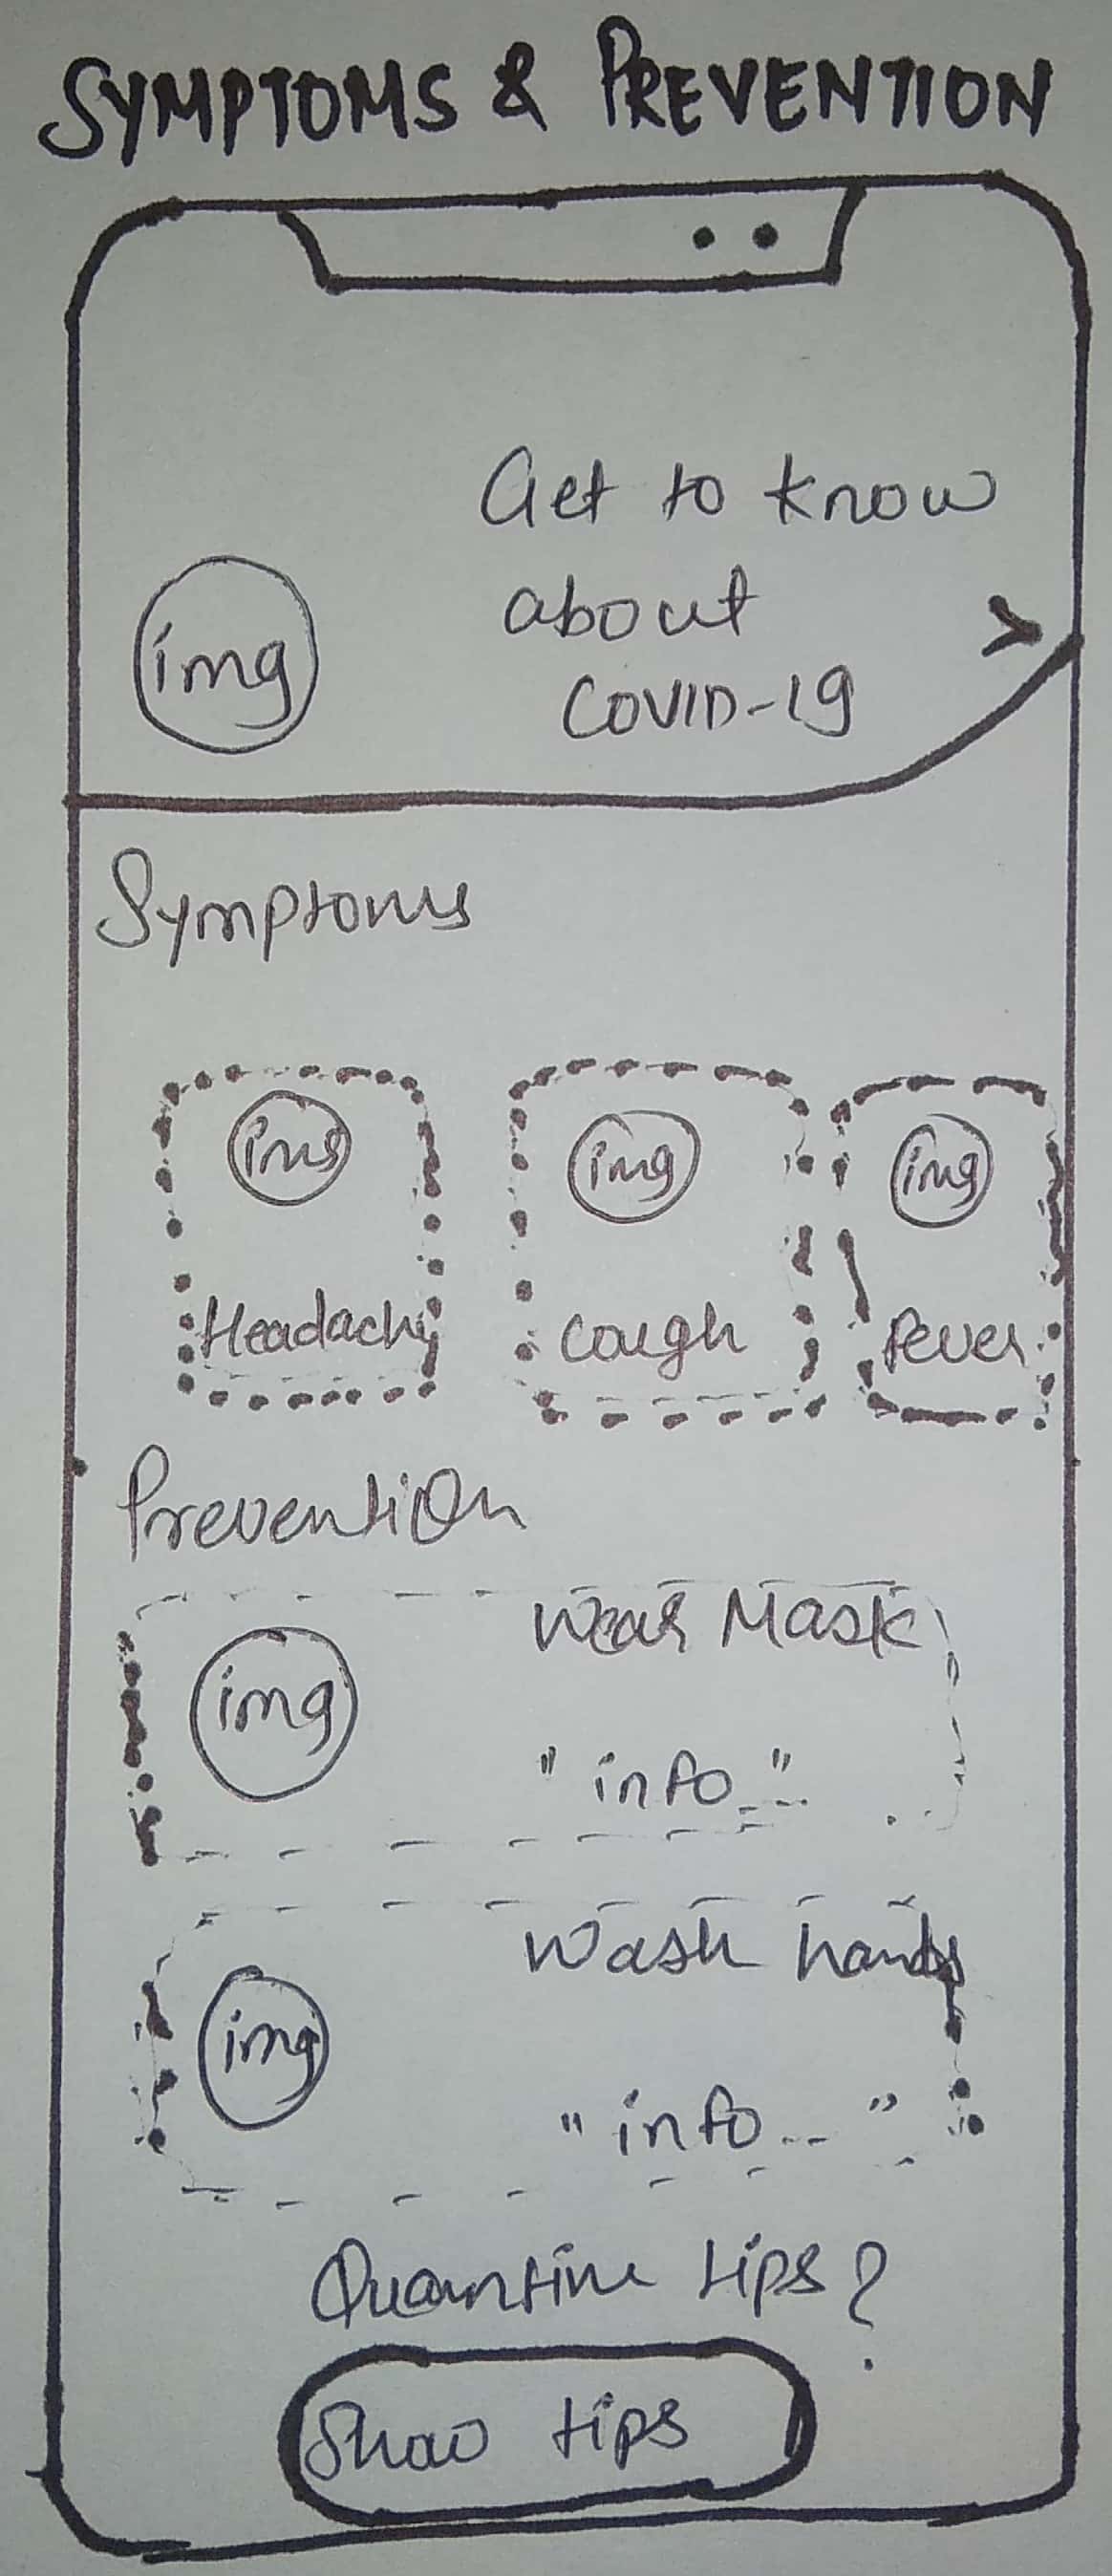 SYMPTOMS & PREVENTION
Get to know
about
>
COVID-19
img
Symptoms
img img img
Headache Cough Fever
Prevention
Wear Mask
img
" info... "
Wash hands
img
" info... "
Quarntine tips?
Show tips